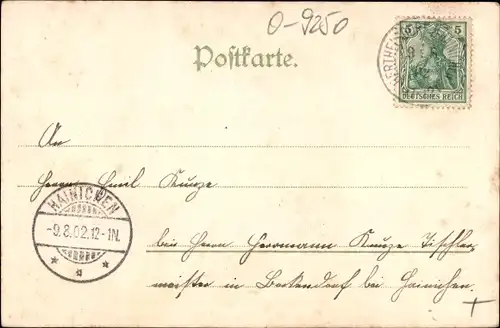 O-9250
Postkarte.
5 5
DEUTSCHES REICH
An
Herrn Emil Kunze
HAINICHEN
-9.8.02.12-1N.
bei Herrn Herrmann Kunze Tischler-
meister in Berthelsdorf bei Hainichen.